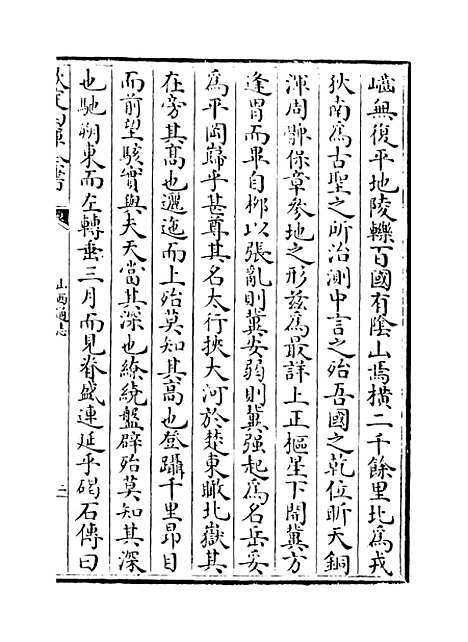 巇無復平地陵轢百國有陰山焉横二千餘里北爲戎
狄南爲古聖之所治測中言之殆吾國之乾位昕天銅
渾周髀保章參地之形兹爲最詳上正樞星下開冀方
逢胃而畢自栁以張亂則冀安弱則冀强起爲名岳妥
爲平岡巋乎甚尊其名大行挾大河於楚東瞰北嶽其
在旁其髙也邐迤而上殆莫知其髙也登躡千里昂目
而前望駭實與夫天當其深也繚繞盤辟殆莫知其深
也馳朔東而左轉歪三月而見脊盛連延乎碣石傳曰
欽定四庫全書
山西通志
二